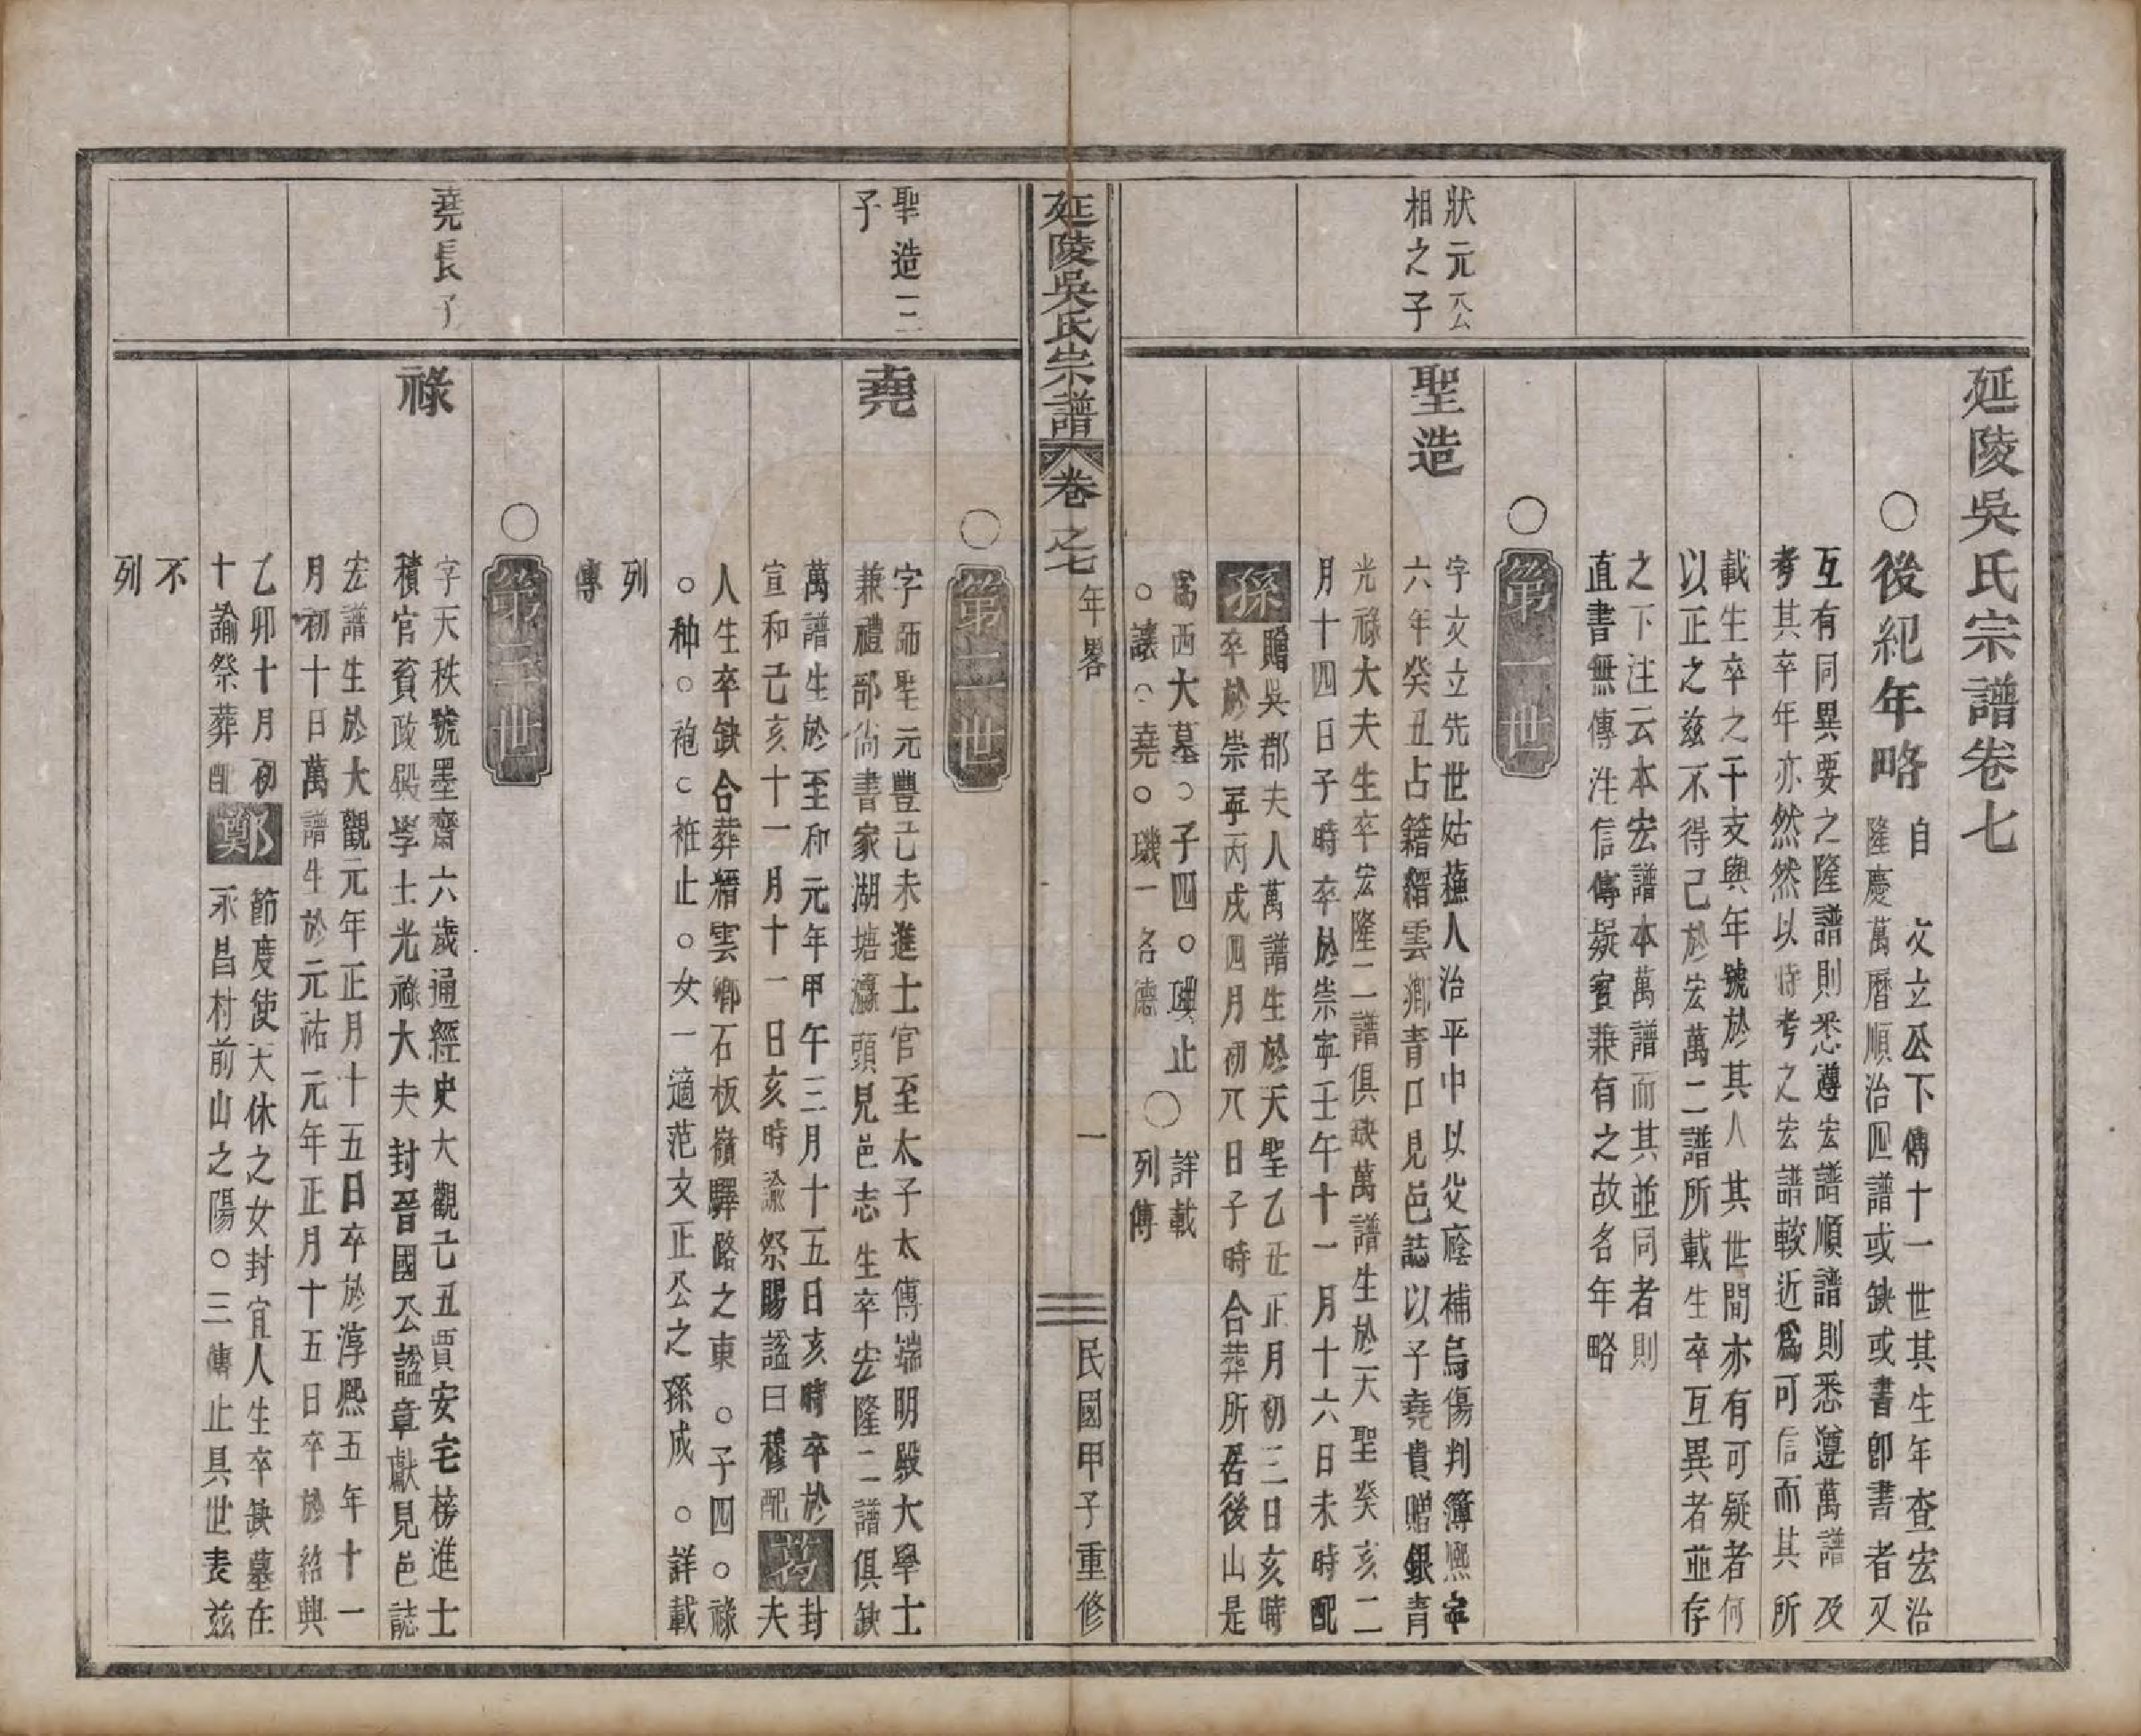 延陵吳氏宗譜卷七
○後紀年略
自　文立公下傳十一世其生年查宏治
隆慶萬曆順治四譜或缺或書卽書者又
互有同異要之隆譜則悉遵宏譜順譜則悉遵萬譜及
考其卒年亦然然以時考之宏譜較近爲可信而其所
載生卒之干支與年號於其人其世間亦有可疑者何
以正之兹不得已於宏萬二譜所載生卒互異者並存
之下注云本宏譜本萬譜而其並同者則
直書無傳注信傳疑實兼有之故名年略
○第一世
狀元公
相之子
聖造
字文立先世姑蘓人治平中以父廕補烏傷判簿熈寧
六年癸丑占籍縉雲鄉青口見邑誌以子堯貴贈銀青
光祿大夫生卒宏隆二譜俱缺萬譜生於天聖癸亥二
月十四日子時卒於崇寧壬午十一月十六日未時配
孫贈吳郡夫人萬譜生於天聖乙丑正月初三日亥時
卒於崇寧丙戌四月初八日子時合葬所居後山是
爲西大墓○子四○璵止
○讓○堯○璣一名德
○詳載
列傳
延陵吳氏宗譜
卷之七
年畧
一
民國甲子重修
○第二世
聖造三
子
堯
字師聖元豐己未進士官至太子太傅端明殿大學士
兼禮部尙書家湖塘瀛頭見邑志生卒宏隆二譜俱缺
萬譜生於至和元年甲午三月十五日亥時卒於
宣和己亥十一月十一日亥時諭祭賜諡曰穆配萬封夫
人生卒缺合葬縉雲鄉石板嶺驛路之東○子四○祿
○种○袍○袵止○女一適范文正公之孫成○詳載
列
傳
○第三世
堯長子
祿
字天秩號墨齋六歲通經史大觀己丑賈安宅榜進士
積官資政殿學士光祿大夫封晉國公諡章獻見邑誌
宏譜生於大觀元年正月十五日卒於淳熈五年十一
月初十日萬譜生於元祐元年正月十五日卒於紹興
乙卯十月初十諭祭葬配鄭節度使天休之女封宜人生卒缺墓在
永昌村前山之陽○三傳止具世表兹
不
列